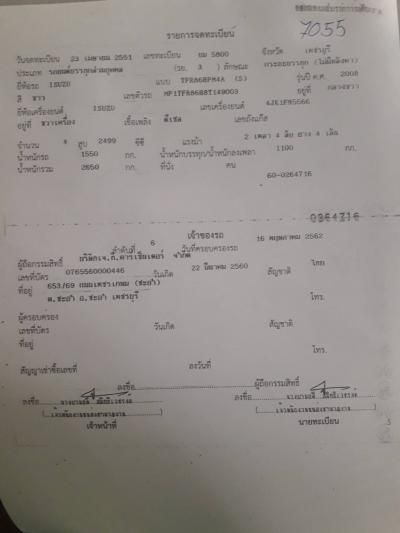 7055
รายการจดทะเบียน
วันจดทะเบียน 23 เมษายน 2551 เลขทะเบียน ยม 5800 จังหวัด เพชรบุรี
ประเภท รถยนต์บรรทุกส่วนบุคคล (รย. 3 ) ลักษณะ กระบะบรรทุก (ไม่มีหลังคา)
ยี่ห้อรถ ISUZU แบบ TFR86BPM4A (S) รุ่นปี ค.ศ. 2008
สี ขาว เลขตัวรถ MP1TFR86B8T149003 อยู่ที่ กลางขวา
ยี่ห้อเครื่องยนต์ ISUZU เลขเครื่องยนต์
อยู่ที่ ขวาเครื่อง เชื้อเพลิง ดีเซล เลขถังแก๊ส
จำนวน 4 สูบ 2499 ซีซี แรงม้า 2 เพลา 4 ล้อ ยาง 4 เส้น
น้ำหนักรถ 1550 กก. น้ำหนักบรรทุก/น้ำหนักลงเพลา 1100 กก.
น้ำหนักรวม 2650 กก. ที่นั่ง คน
60-0264716
0264716
เจ้าของรถ
ลำดับที่ 6 วันที่ครอบครองรถ 16 พฤษภาคม 2562
ผู้ถือกรรมสิทธิ์ บริษัทเจ.ก.คาร์เซ็นเตอร์ จำกัด
เลขที่บัตร 0765560000446 วันเกิด 22 มีนาคม 2560 สัญชาติ ไทย
ที่อยู่ 653/69 ถนนเพชรเกษม (ชะอำ)
ต.ชะอำ อ.ชะอำ เพชรบุรี โทร.
ผู้ครอบครอง
เลขที่บัตร วันเกิด สัญชาติ
ที่อยู่
โทร.
สัญญาเช่าซื้อเลขที่ ลงวันที่
ลงชื่อ ผู้ถือกรรมสิทธิ์
ลงชื่อ ลงชื่อ
เจ้าหน้าที่ นายทะเบียน